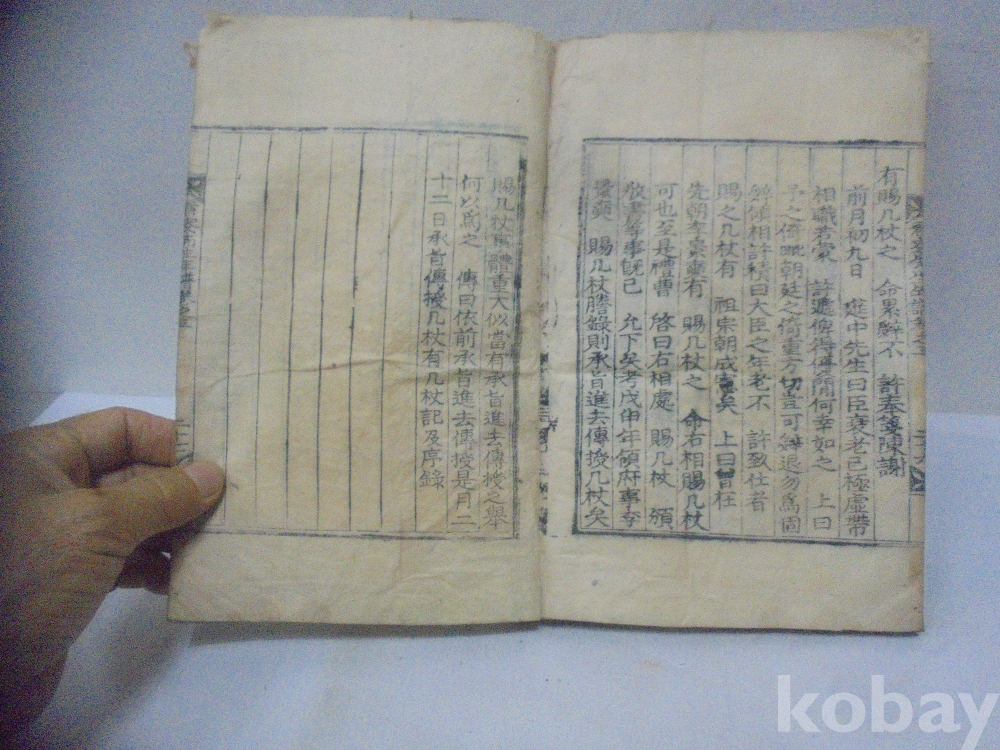 有賜几杖之 命累辭不 許奉箋陳謝
前月初九日 筵中先生曰臣衰老已極虛帶
相職若蒙 許遞俾得便閒何幸如之 上曰
予之倚毗朝廷之倚重方切豈可輕退勿爲固
辭領相許積曰大臣之年老不 許致仕者
賜之几杖有 祖宗朝成憲矣 上曰曾在
先朝李景奭有 賜几杖之 命右相賜几杖
可也至是禮曹 啓曰右相處 賜几杖 頒
敎書等事旣已 允下矣考戊申年領府事李
景奭 賜几杖謄錄則承旨進去傳授几杖矣
賜几杖事體重大似當有承旨進去傳授之擧
何以爲之 傳曰依前承旨進去傳授是月二
十二日承旨傳授几杖有几杖記及序錄
kobay